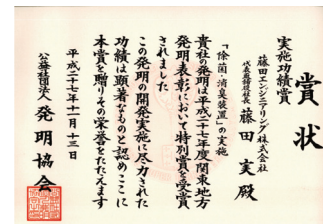 賞状
実施功績賞
藤田エンジニアリング株式会社
代表取締役社長 藤田 実 殿
「除菌・消臭装置」の実施
貴社の発明は平成二十七年度関東地方
発明表彰において特別賞を受賞
されました
この発明の開発実施に尽力された
功績は顕著なものと認めここに
本賞を贈りその栄誉をたたえます
平成二十七年十一月十三日
公益社団法人 発明協会